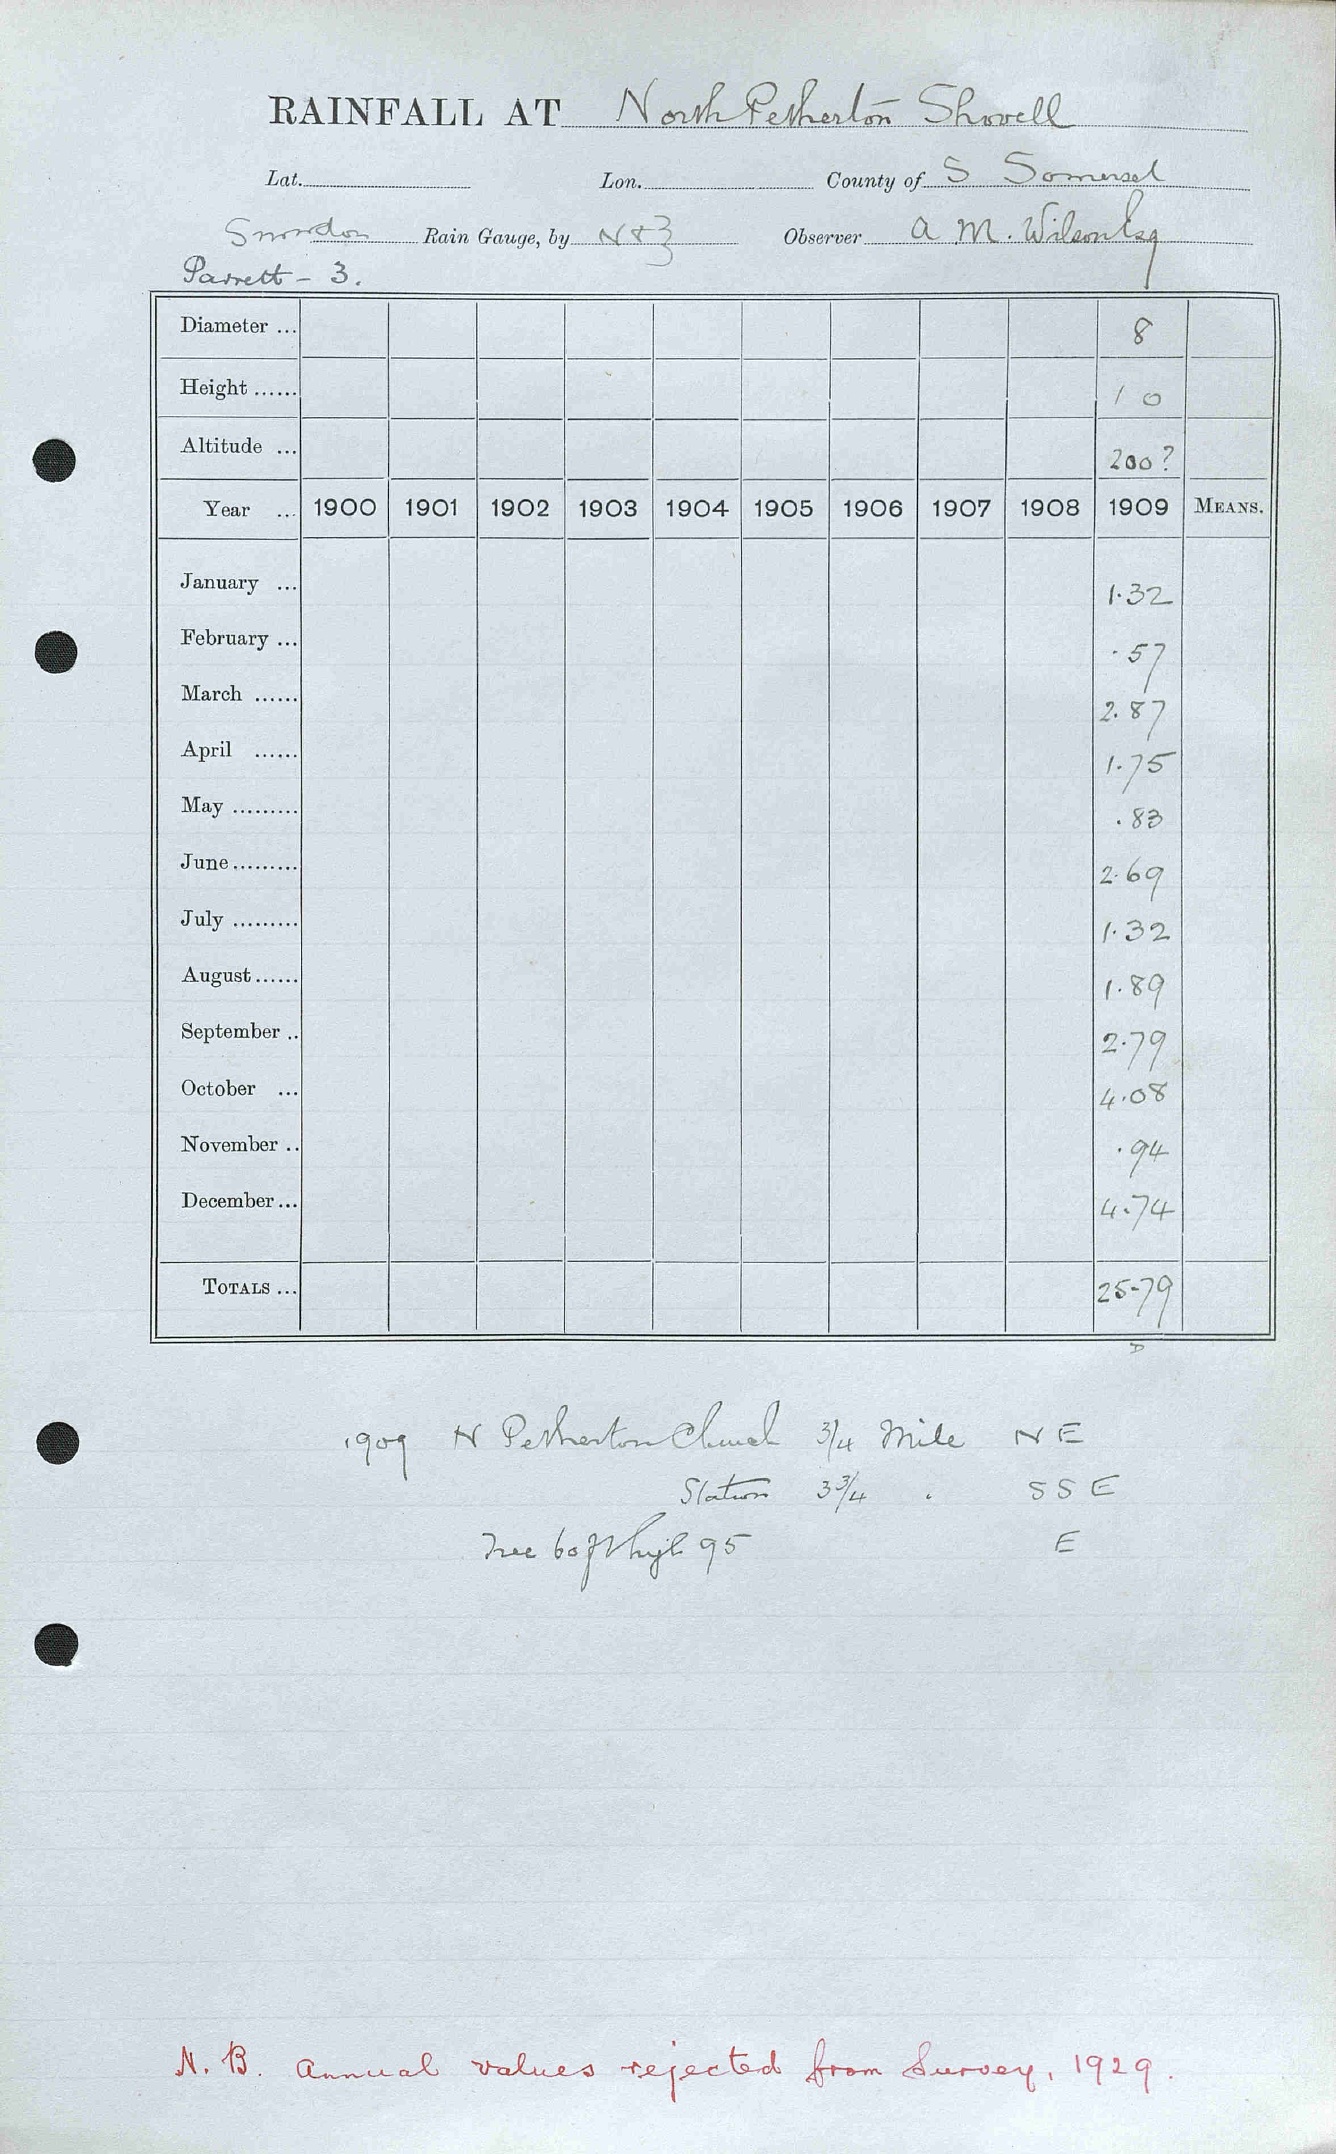 RAINFALL AT North Petherton Shovell
Lat. Lon. County of S Somerset
Snowdon Rain Gauge, by N & Z Observer A M. Wilson Esq
Parrett - 3.
Diameter ... 8
Height ...... 1 0
Altitude ... 200?
Year ... 1900 1901 1902 1903 1904 1905 1906 1907 1908 1909 MEANS.
January ... 1.32
February ... .57
March ...... 2.87
April ...... 1.75
May ......... .83
June ......... 2.69
July ......... 1.32
August ...... 1.89
September .. 2.79
October ... 4.08
November .. .94
December ... 4.74
TOTALS ... 25.79
D
1909 N Petherton Church 3/4 Mile N E
Station 3 3/4 " S S E
Tree 60 ft high 95 E
N. B. Annual values rejected from Survey, 1929.